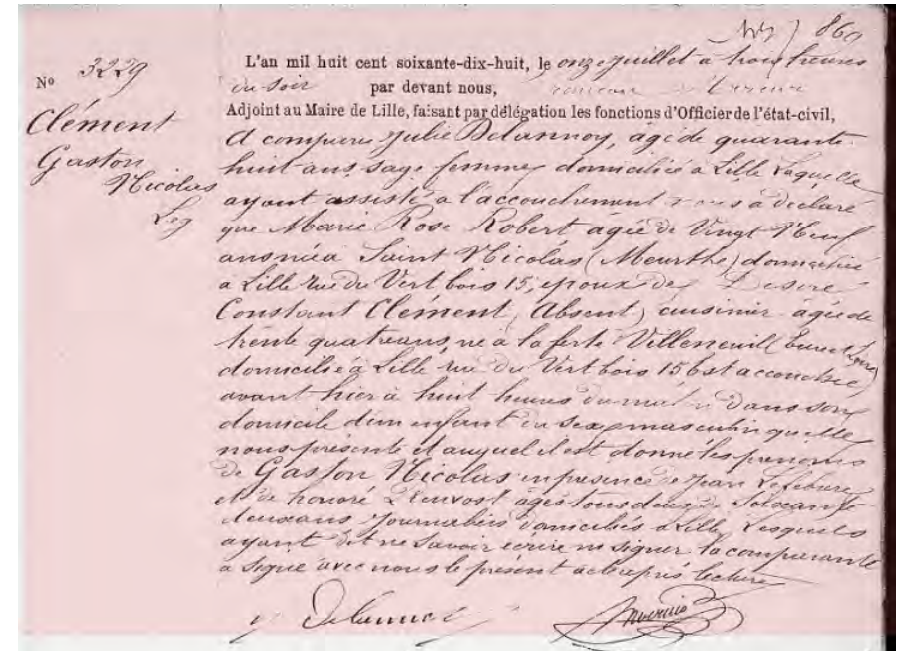 860
No 3229
Clément
Gaston
Nicolas
Leg
L'an mil huit cent soixante-dix-huit, le onze Juillet à trois heures
du soir par devant nous,
Adjoint au Maire de Lille, faisant par délégation les fonctions d'Officier de l'état-civil,
A comparu Julie Delannoy, agée de quarante
huit ans, sage femme domiciliée à Lille Laquelle
ayant assisté à l'accouchement nous a déclaré
que Marie Rose Robert agée de Vingt Neuf
ans née à Saint Nicolas (Meurthe) domiciliée
a Lille rue du Vert bois 15, epouse de Desiré
Constant Clément, (Absent) cuisinier agée de
trente quatre ans, né à la ferté Villeneuil (Eure et Loire)
domicilié à Lille rue du Vert bois 15 Est accouchée
avant hier à huit heures du matin dans son
domicile d'un enfant du sexe masculin qu'elle
nous présente et auquel il est donné les prenoms
de Gaston Nicolas en presence de Jean Lefebvre
et de honoré agés tous deux de Soixante
deux ans Journaliers domiciliés à Lille, Lesquels
ayant dit ne savoir écrire ni signer la comparante
a signé avec nous le présent acte après lecture